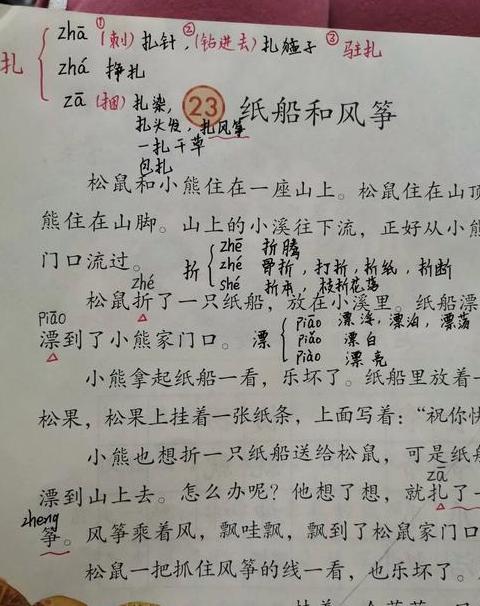 扎 zhā ①(刺)扎针,②(钻进去)扎猛子 ③驻扎
zhá 挣扎
zā (捆)扎染,
扎头发,扎风筝
一扎干草
包扎
23 纸船和风筝
松鼠和小熊住在一座山上。松鼠住在山顶
熊住在山脚。山上的小溪往下流,正好从小熊
门口流过。
折 zhē 折腾
zhé 骨折,打折,折纸,折断
shé 折本,枝折花落
zhé
松鼠折了一只纸船,放在小溪里。纸船漂
piāo
漂到了小熊家门口。
漂 piāo 漂浮,漂泊,漂荡
piǎo 漂白
piào 漂亮
小熊拿起纸船一看,乐坏了。纸船里放着一
松果,松果上挂着一张纸条,上面写着:“祝你快
小熊也想折一只纸船送给松鼠,可是纸船
zā
漂到山上去。怎么办呢?他想了想,就扎了一
zheng
筝。风筝乘着风,飘哇飘,飘到了松鼠家门口
松鼠一把抓住风筝的线一看,也乐坏了。